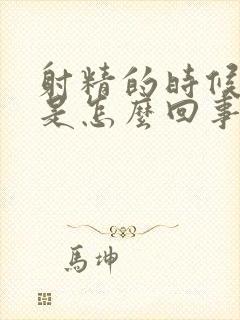 射精的時候
是怎麼回事
馬坤